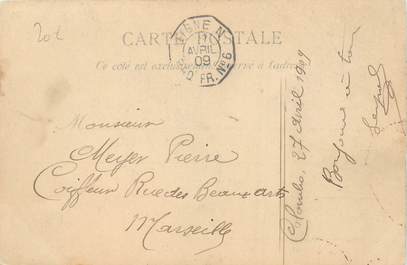 20£
CARTE POSTALE
Ce côté est exclusivement réservé à l'adresse
LIGNE N
AVRIL
09
FR. Nº6
Monsieur
Meyer Pierre
Coiffeur Rue des Beaux arts
Marseille
Colombo, 27 Avril 1909
Bonjour à tous